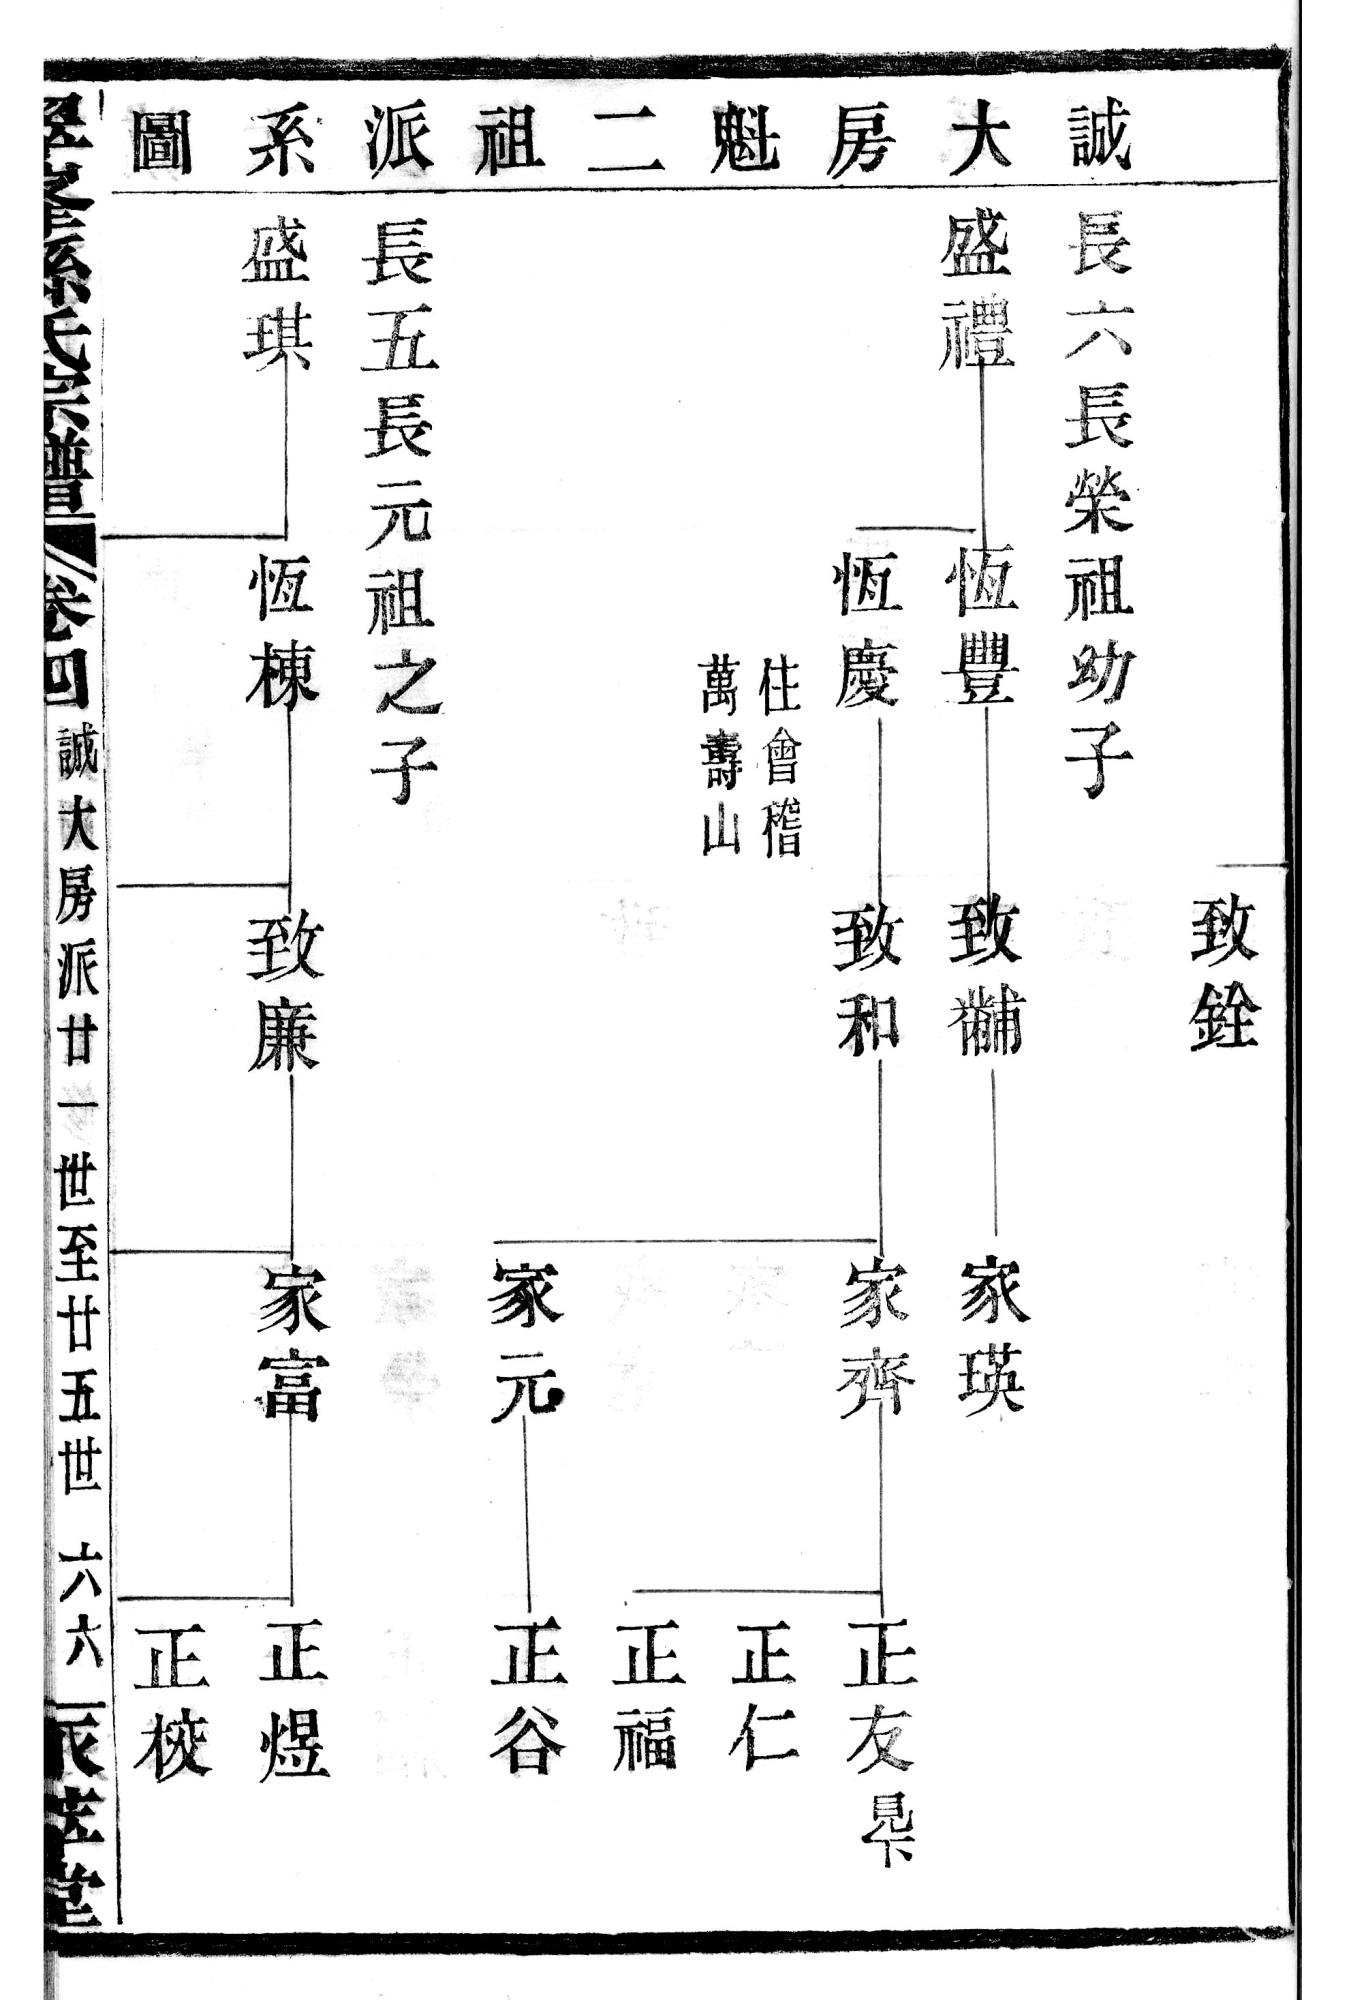 誠大房魁二祖派系圖
致銓
長六長榮祖幼子
盛禮
恆豐
致黼
家瑛
恆慶
致和
家齊
正友見下
住會稽
萬壽山
正仁
正福
家元
正谷
長五長元祖之子
盛琪
恆棟
致廉
家富
正煜
正校
孫氏宗譜
卷四
誠大房派廿一世至廿五世
六六